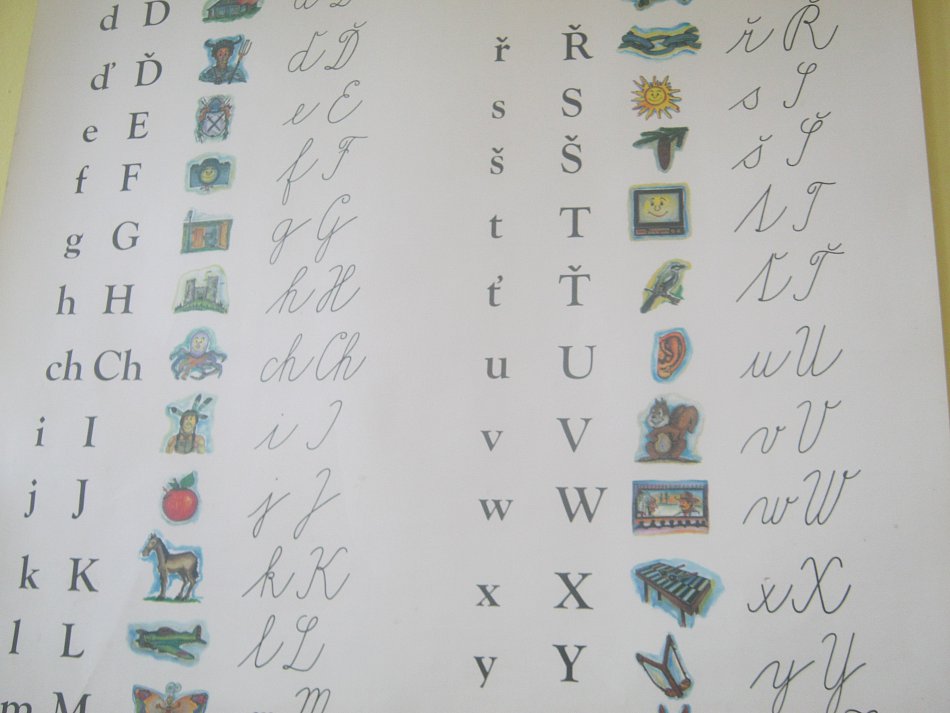 d D d D
ď Ď ď Ď
e E e E
f F f F
g G g G
h H h H
ch Ch ch Ch
i I i I
j J j J
k K k K
l L l L
m M m M
ř Ř ř Ř
s S s S
š Š š Š
t T t T
ť Ť ť Ť
u U u U
v V v V
w W w W
x X x X
y Y y Y